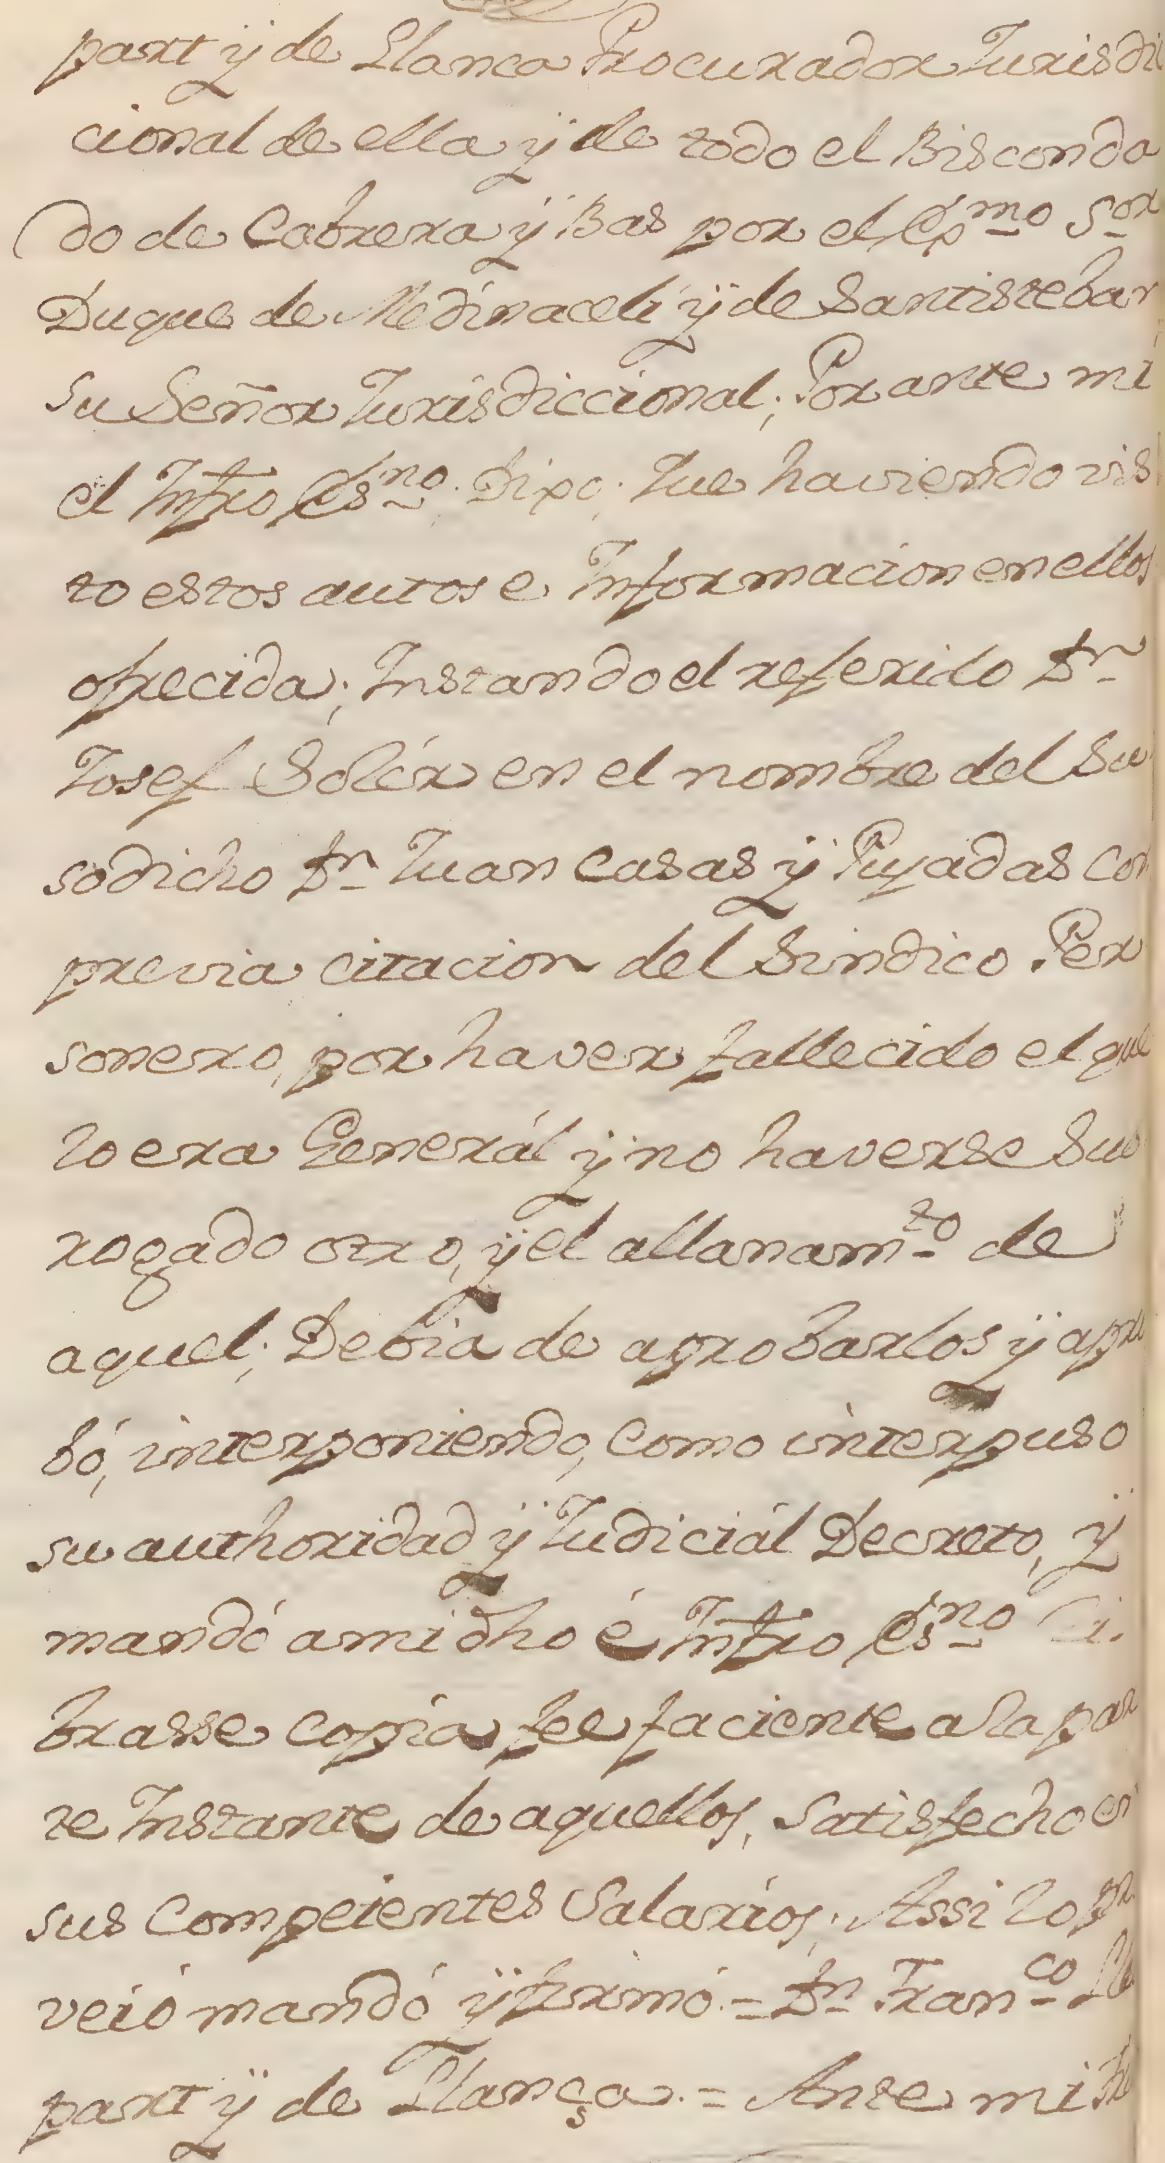 part ÿ de Llanca Procurador Jurisdic
cional de ella ÿ de todo el Bisconda
do de Cabrera ÿ Bas por el Exmo Sor
Duque de Medinaceli ÿ de Santisteban
su Señor Jurisdiccional; Por ante mi
el Infro Esno. Dixo; Que haviendo vis
to estos autos e Informacion en ellos
ofrecida; Instando el referido Dn
Josef Solér en el nombre del Su
sodicho Dn Juan Casas ÿ Puyadas con
previa citacion del Sindico Per
sonero, por haver fallecido el que
lo era Generál ÿ no haverse Sub
rogado otro, ÿ el allanamto de
aquel; Debia de aprobarlos ÿ apro
bó, interponiendo, como interpuso
su authoridad ÿ Judiciál Decreto, ÿ
mandó a mi dho é Infro Esno Li
brasse copia feefaciente a la par
te Instante de aquellos, satisfecho en
sus Competentes Salarios; Assi lo pro
veió mandó ÿ firmó. = Dn Franco
part ÿ de Llança. = Ante mi